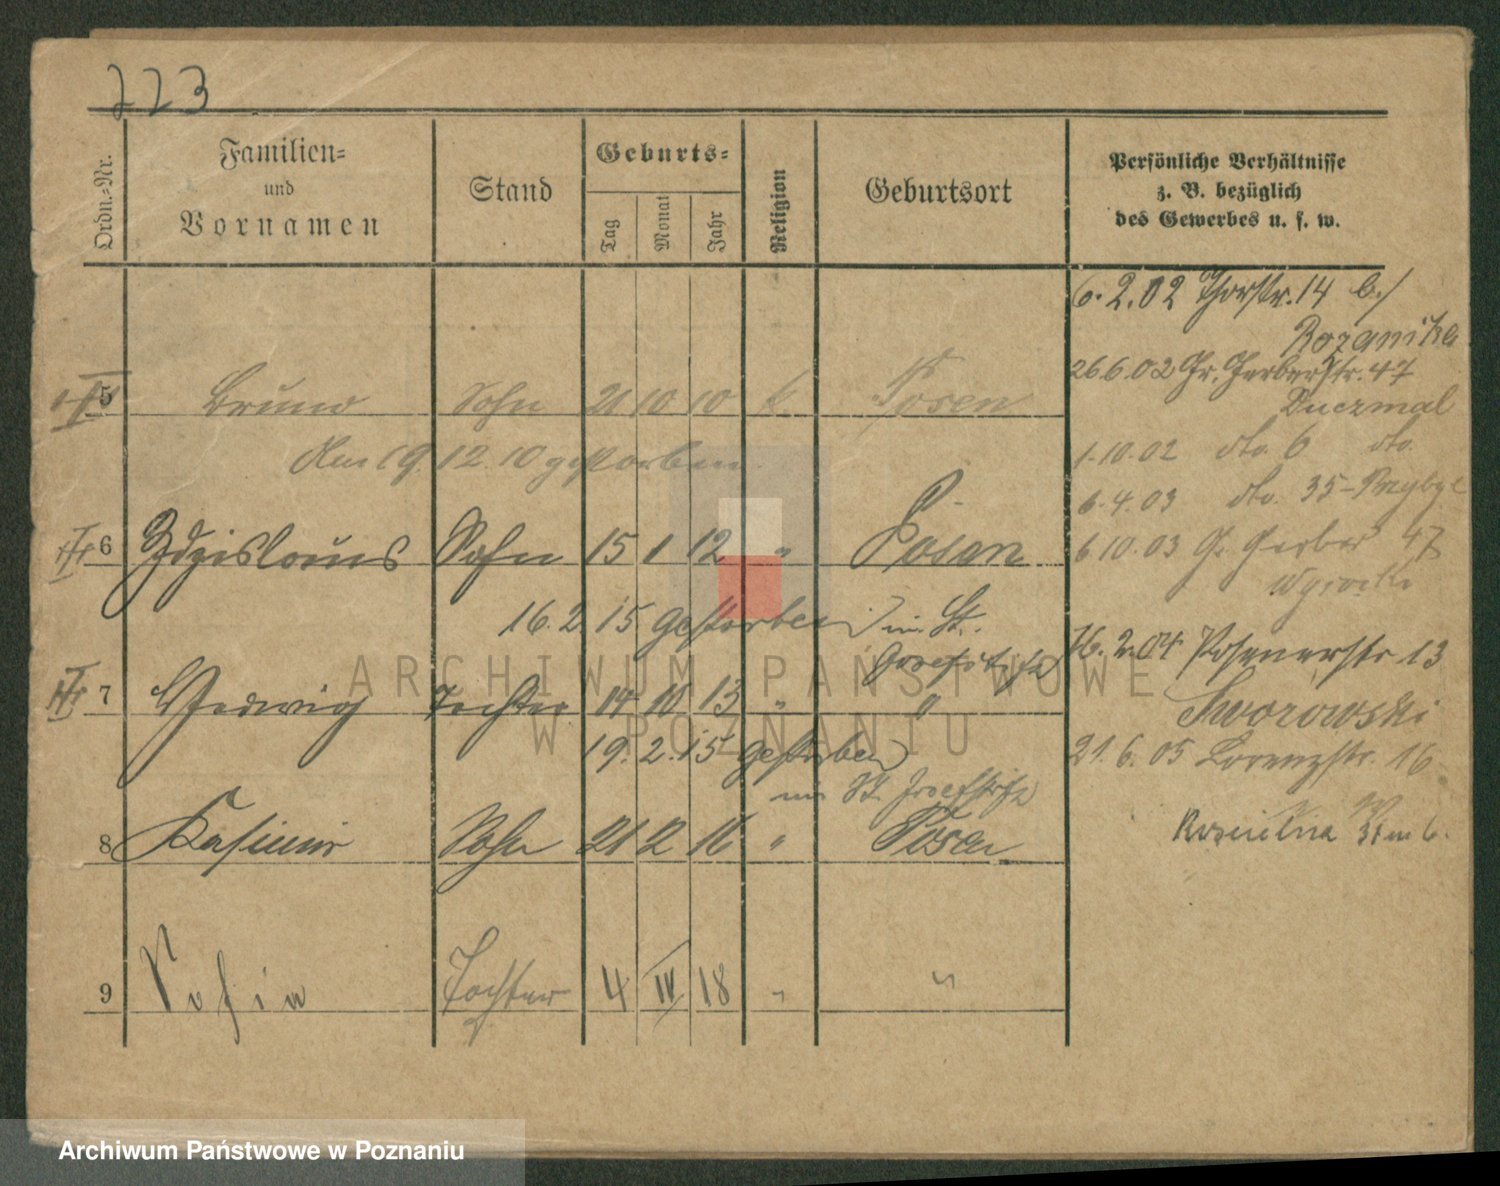 223
Ordn.-Nr.
Familien-
und
Vornamen
Stand
Geburts-
Tag
Monat
Jahr
Religion
Geburtsort
Persönliche Verhältnisse
z. B. bezüglich
des Gewerbes u. s. w.
6.2.02 Thorstr. 14 b./
26.6.02 Gr. Gerberstr. 47
Duczmal
5 Bruno Sohn 21 10 10 k Posen
Am 19.12.10 gestorben.
1.10.02 dto. 6 dto.
6.4.03 dto. 35
6 Zdzislaus Sohn 15 1 12 " Posen
6.10.03 Gr. Gerber 47
16.2.15 gestorben im St.
16.2.04 Posenerstr 13
7 Hedwig Tochter 14 10 13 " "
Sworowski
19.2.15 gestorben
21.6.05 Lorenzstr. 16
im St. Josefstift
8 Kasimir Sohn 21 2 16 " Posen
9 Sofia Tochter 4 IV 18 " "
ARCHIWUM PAŃSTWOWE
W POZNANIU
Archiwum Państwowe w Poznaniu